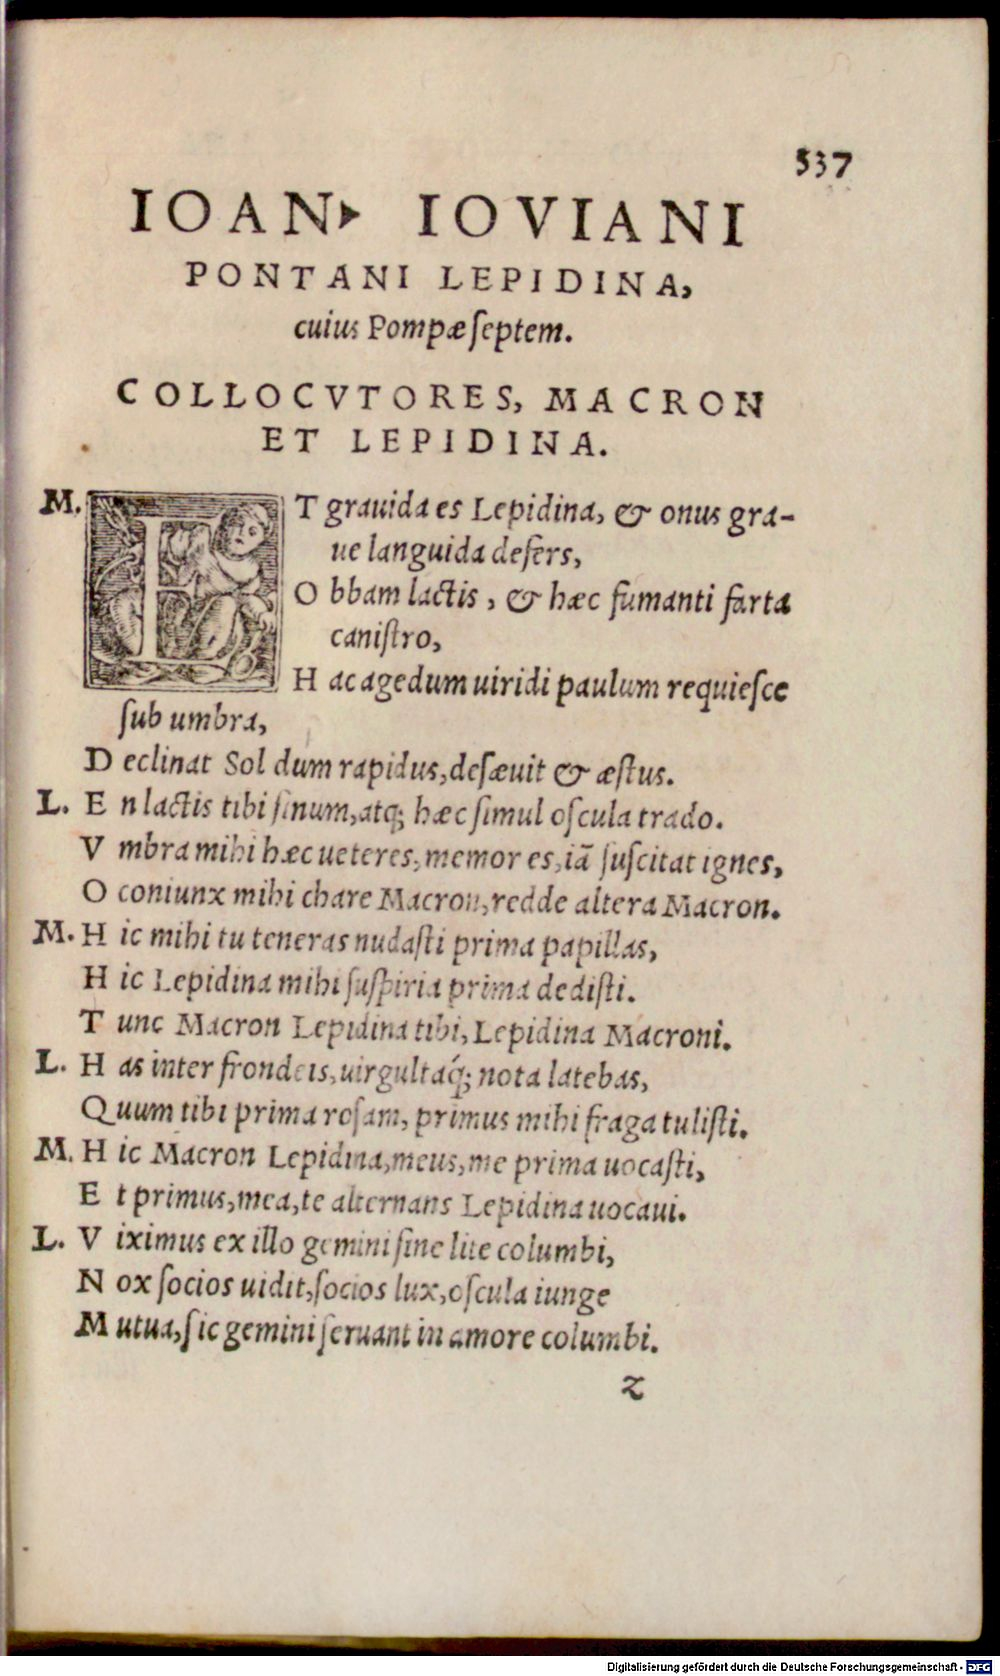 537
IOAN. IOVIANI
PONTANI LEPIDINA,
cuius Pompæ ſeptem.
COLLOCVTORES, MACRON
ET LEPIDINA.
M. ET grauida es Lepidina, & onus gra-
ue languida defers,
O bbam lactis, & hæc fumanti farta
caniſtro,
H ac agedum uiridi paulum requieſce
ſub umbra,
D eclinat Sol dum rapidus, deſæuit & æſtus.
L. E n lactis tibi ſinum, atq; hæc ſimul oſcula trado.
V mbra mihi hæc ueteres, memor es, iã ſuſcitat ignes,
O coniunx mihi chare Macron, redde altera Macron.
M. H ic mihi tu teneras nudaſti prima papillas,
H ic Lepidina mihi ſuſpiria prima dediſti.
T unc Macron Lepidina tibi, Lepidina Macroni.
L. H as inter frondeis, uirgultaq́; nota latebas,
Q uum tibi prima roſam, primus mihi fraga tuliſti.
M. H ic Macron Lepidina, meus, me prima uocaſti,
E t primus, mea, te alternans Lepidina uocaui.
L. V iximus ex illo gemini ſine lite columbi,
N ox ſocios uidit, ſocios lux, oſcula iunge
M utua, ſic gemini ſeruant in amore columbi.
z
Digitalisierung gefördert durch die Deutsche Forschungsgemeinschaft - DFG